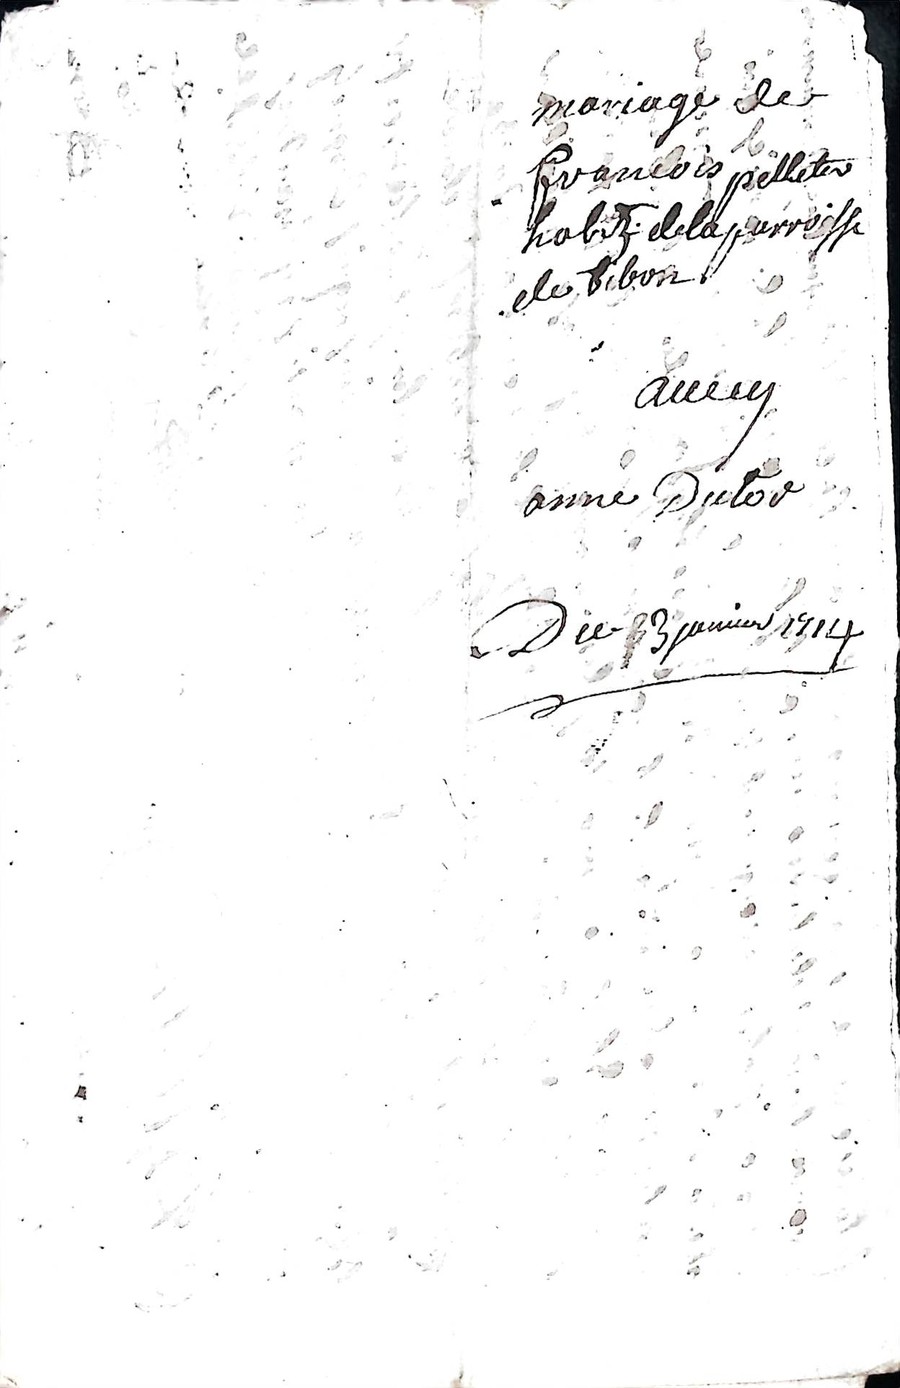 mariage de
francois pelleter
habt de la parroisse
de bibon
auecq
anne Dutor
Du 23 januier 1714